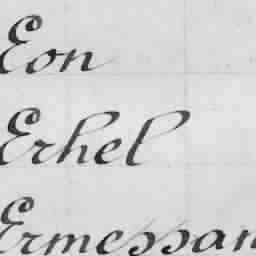 Eon
Erhel
Ermessan